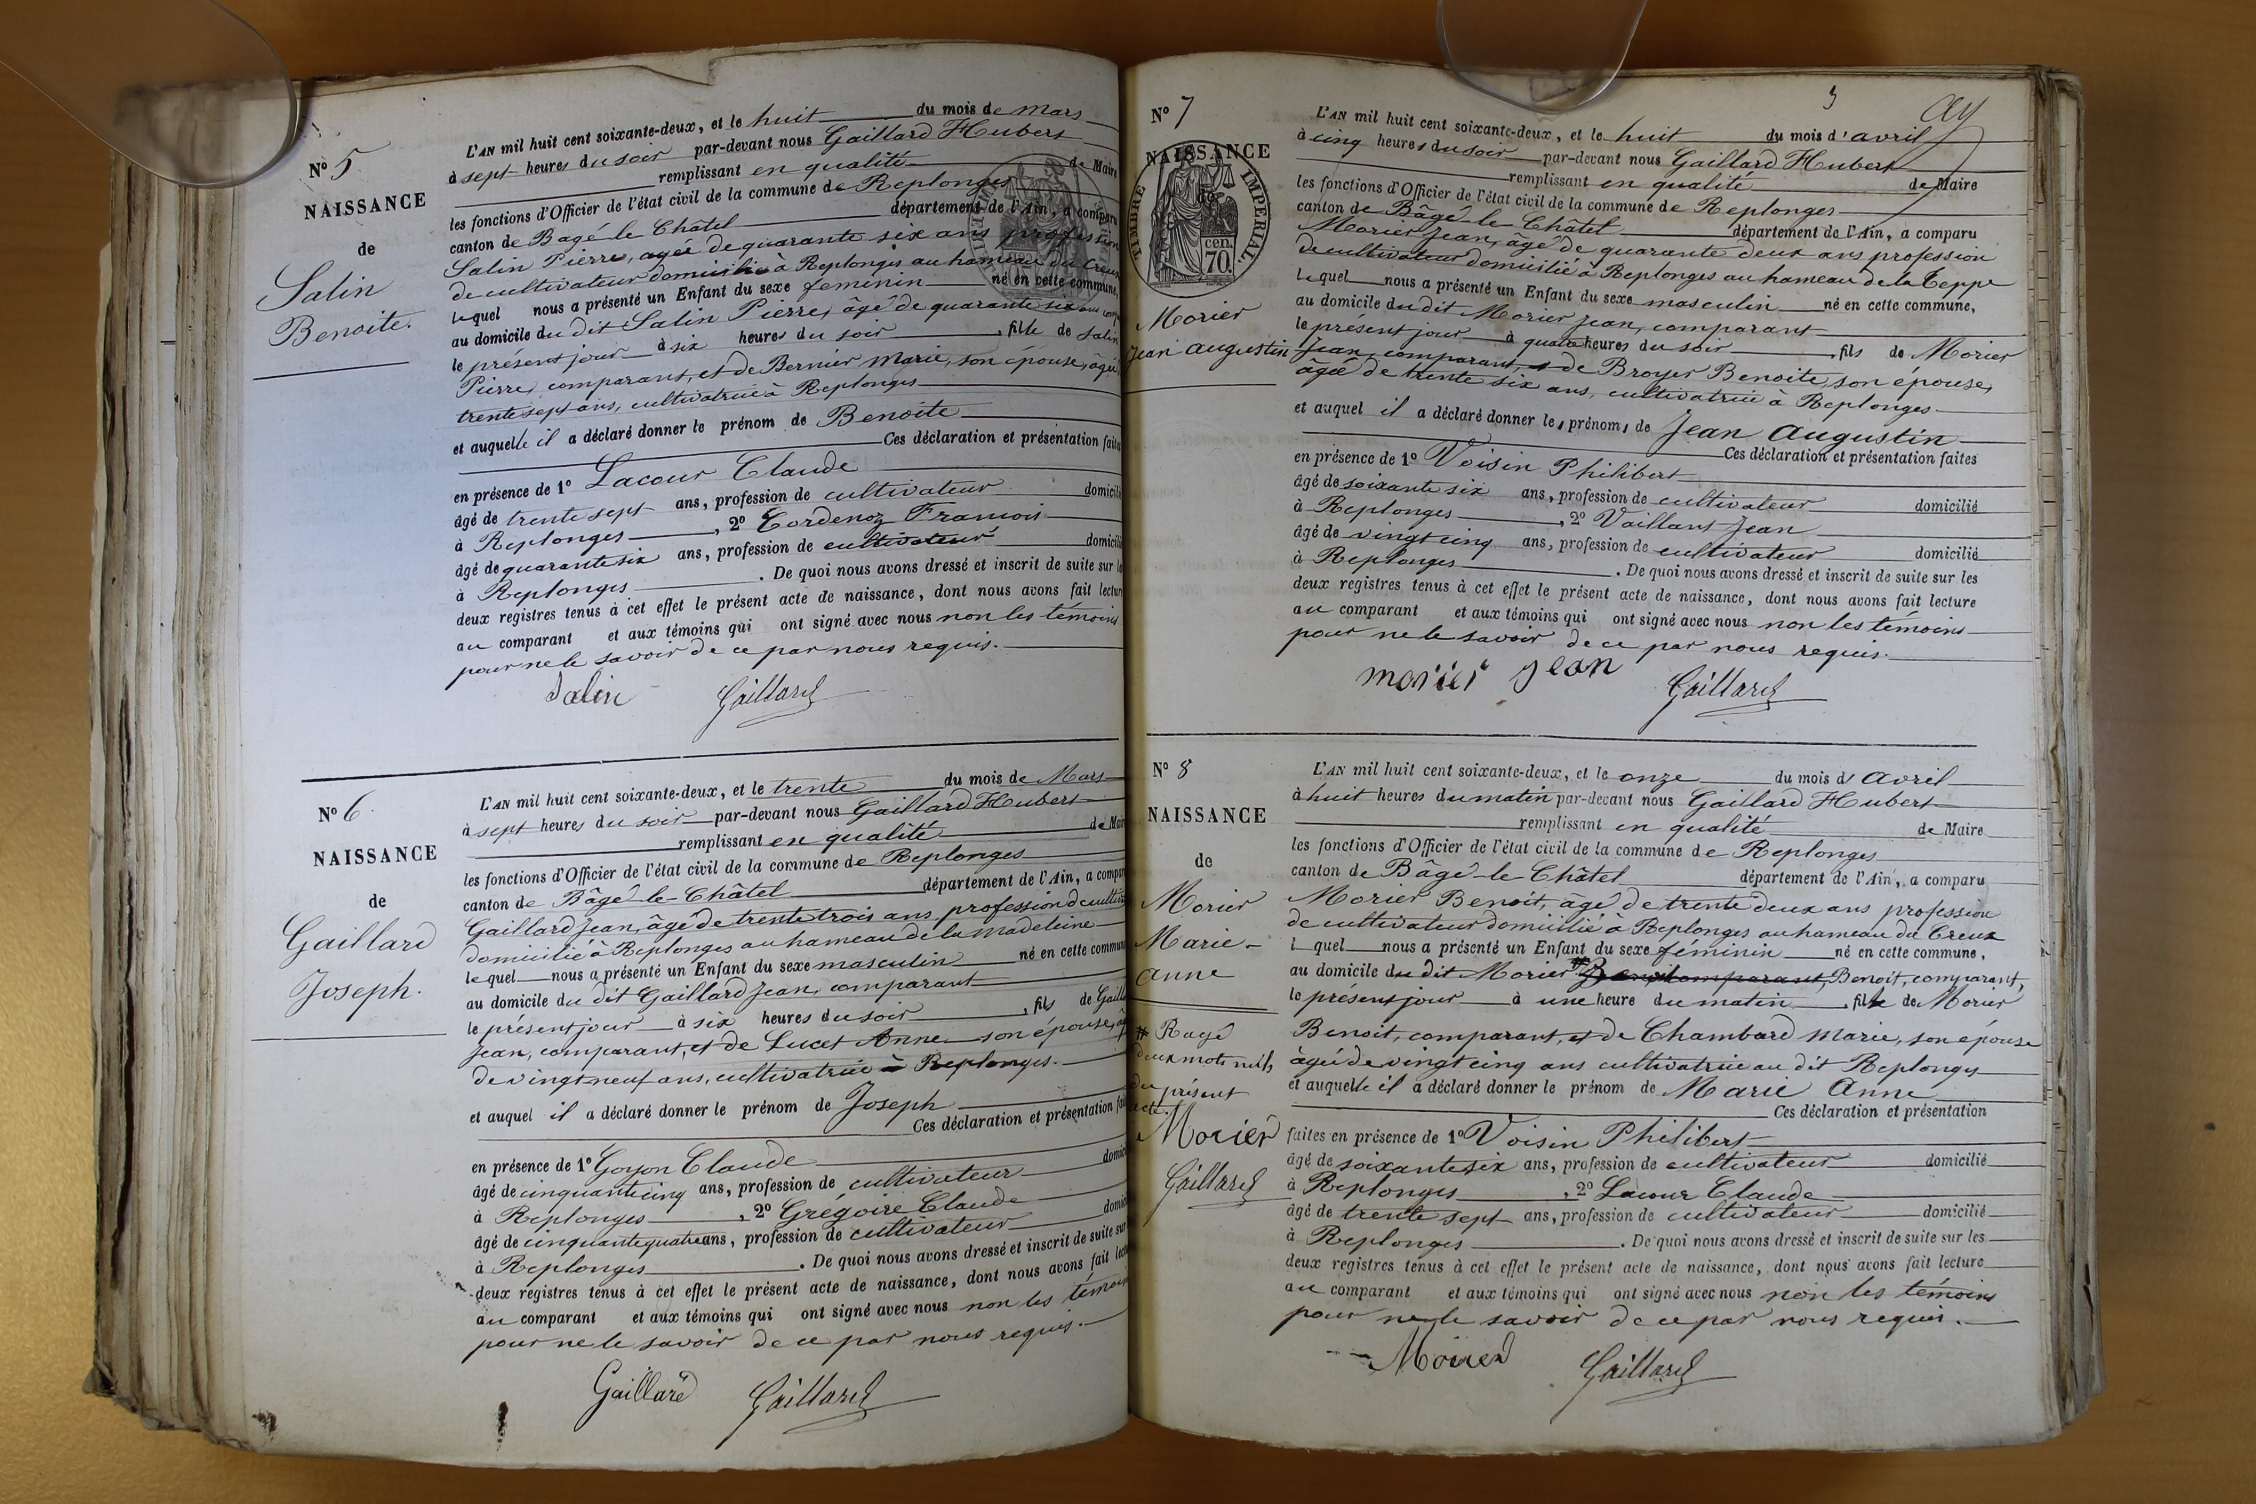 N° 5
NAISSANCE
de
Salin
Benoite.
L'AN mil huit cent soixante-deux, et le huit du mois de Mars
à sept heures du soir par-devant nous Gaillard Hubert
remplissant en qualité de Maire
les fonctions d'Officier de l'état civil de la commune de Replonges
canton de Bagé-le-Châtel département de l'Ain, a comparu
Salin Pierre, agée de quarante six ans profession
de cultivateur domicilié à Replonges au hameau du Creux
lequel nous a présenté un Enfant du sexe feminin né en cette commune,
au domicile du dit Salin Pierre, âgé de quarante six ans
le présent jour à six heures du soir , fille de Salin
Pierre, comparant, et de Bernier Marie, son épouse, âgée
trente sept ans, cultivatrice à Replonges
et auquelle il a déclaré donner le prénom de Benoite
Ces déclaration et présentation faites
en présence de 1° Lacour Claude
âgé de trente sept ans, profession de cultivateur domicilié
à Replonges , 2° Cordenoz Francois
âgé de quarante six ans, profession de cultivateur domicilié
à Replonges . De quoi nous avons dressé et inscrit de suite sur les
deux registres tenus à cet effet le présent acte de naissance, dont nous avons fait lecture
au comparant et aux témoins qui ont signé avec nous non les témoins
pour ne le savoir de ce par nous requis.
Salin Gaillard
N° 6
NAISSANCE
de
Gaillard
Joseph.
L'AN mil huit cent soixante-deux, et le trente du mois de Mars
à sept heures du soir par-devant nous Gaillard Hubert
remplissant en qualité de Maire
les fonctions d'Officier de l'état civil de la commune de Replonges
canton de Bâgé-le-Châtel département de l'Ain, a comparu
Gaillard Jean, âgé de trente trois ans profession de cultivateur
domicilié à Replonges au hameau de la Madeleine
lequel nous a présenté un Enfant du sexe masculin né en cette commune
au domicile du dit Gaillard Jean, comparant
le présent jour à six heures du soir , fils de Gaillard
Jean, comparant, et de Lucet Anne son épouse, âgée
de vingt neuf ans, cultivatrice à Replonges.
et auquel il a déclaré donner le prénom de Joseph
Ces déclaration et présentation faites
en présence de 1° Goyon Claude
âgé de cinquante cinq ans, profession de cultivateur domicilié
à Replonges , 2° Grégoire Claude
âgé de cinquante quatre ans, profession de cultivateur domicilié
à Replonges . De quoi nous avons dressé et inscrit de suite sur
deux registres tenus à cet effet le présent acte de naissance, dont nous avons fait lecture
au comparant et aux témoins qui ont signé avec nous non les témoins
pour ne le savoir de ce par nous requis.
Gaillard Gaillard
3
N° 7
NAISSANCE
de
TIMBRE IMPERIAL
cen.
70.
Morier
Jean Augustin
L'AN mil huit cent soixante-deux, et le huit du mois d'avril
à cinq heures du soir par-devant nous Gaillard Hubert
remplissant en qualité de Maire
les fonctions d'Officier de l'état civil de la commune de Replonges
canton de Bâgé-le-Châtel département de l'Ain, a comparu
Morier Jean, âgé de quarante deux ans profession
de cultivateur domicilié à Replonges au hameau de la Teppe
lequel nous a présenté un Enfant du sexe masculin né en cette commune,
au domicile du dit Morier Jean, comparant
le présent jour à quatre heures du soir , fils de Morier
Jean, comparant, et de Broyer Benoite, son épouse,
âgée de trente six ans, cultivatrice à Replonges
et auquel il a déclaré donner les prénoms de Jean Augustin
Ces déclaration et présentation faites
en présence de 1° Voisin Philibert
âgé de soixante six ans, profession de cultivateur domicilié
à Replonges , 2° Vaillant Jean
âgé de vingt cinq ans, profession de cultivateur domicilié
à Replonges . De quoi nous avons dressé et inscrit de suite sur les
deux registres tenus à cet effet le présent acte de naissance, dont nous avons fait lecture
au comparant et aux témoins qui ont signé avec nous non les témoins
pour ne le savoir de ce par nous requis.
morier jean Gaillard
N° 8
NAISSANCE
de
Morier
Marie-
Anne
# Rayé
deux mots nuls
du présent
acte.
Morier
Gaillard
L'AN mil huit cent soixante-deux, et le onze du mois d'Avril
à huit heures du matin par-devant nous Gaillard Hubert
remplissant en qualité de Maire
les fonctions d'Officier de l'état civil de la commune de Replonges
canton de Bâgé-le-Châtel département de l'Ain, a comparu
Morier Benoit, âgé de trente deux ans profession
de cultivateur domicilié à Replonges au hameau du Creux
lequel nous a présenté un Enfant du sexe féminin né en cette commune,
au domicile du dit Morier # comparant, Benoit, comparant,
le présent jour à une heure du matin , fille de Morier
Benoit, comparant, et de Chambard Marie, son épouse
âgée de vingt cinq ans cultivatrice au dit Replonges
et auquelle il a déclaré donner le prénom de Marie Anne
Ces déclaration et présentation
faites en présence de 1° Voisin Philibert
âgé de soixante six ans, profession de cultivateur domicilié
à Replonges , 2° Lacour Claude
âgé de trente sept ans, profession de cultivateur domicilié
à Replonges . De quoi nous avons dressé et inscrit de suite sur les
deux registres tenus à cet effet le présent acte de naissance, dont nous avons fait lecture
au comparant et aux témoins qui ont signé avec nous non les témoins
pour ne le savoir de ce par nous requis.
Morier Gaillard